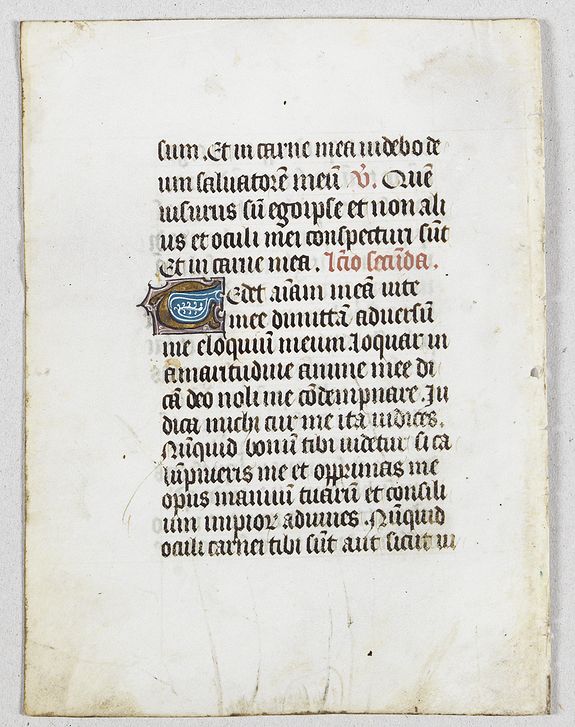 sum. Et in carne mea uidebo de
um saluatorē meū ℣. Quē
uisurus sū ego ipse et non ali
us et oculi mei conspecturi sūt
Et in carne mea. lc̄io secūda.
Tedet aīam meā uite
mee dimittā aduersū
me eloquiū meum loquar in
amaritudine anime mee di
cā deo noli me cōdempnare. In
dica michi cur me ita iudices.
Nūquid bonū tibi uidetur si ca
lūpnieris me et opprimas me
opus manuū tuarū et consili
um impior adiuues. Nūquid
oculi carnei tibi sūt aut sicut ui